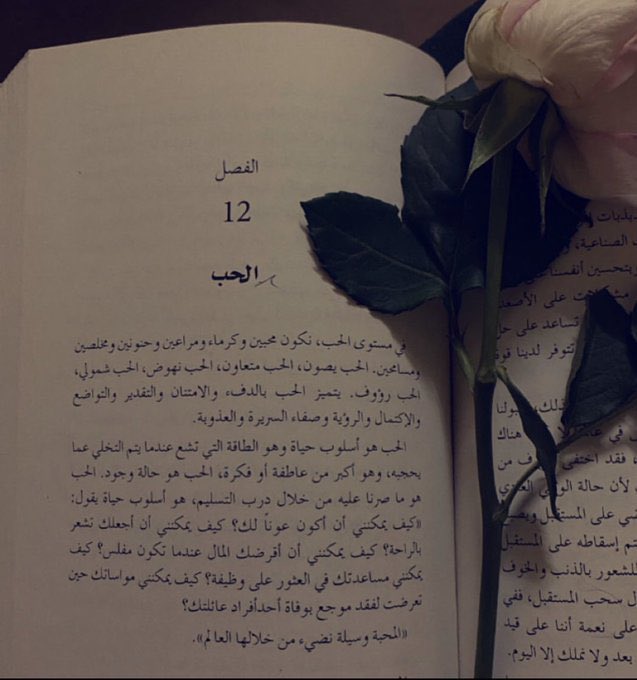 الصناعية،
بتحسين أنفسنا
على الأصعد
تساعد على حل
تتوفر لدينا
هناك
فقد اختفى من
لأن حالة
على المستقبل
إسقاطه على المستقبل
للشعور بالذنب والخوف
سحب المستقبل، ففي
على نعمة أننا على قيد
بعد ولا نملك إلا اليوم.
الفصل
12
الحب
في مستوى الحب، نكون محبين وكرماء ومراعين وحنونين ومخلصين
ومسامحين. الحب يصون، الحب متعاون، الحب نهوض، الحب شمولي،
الحب رؤوف. يتميز الحب بالدفء والامتنان والتقدير والتواضع
والإكتمال والرؤية وصفاء السريرة والعذوبة.
الحب هو أسلوب حياة وهو الطاقة التي تشع عندما يتم التخلي عما
يحجبه، وهو أكبر من عاطفة أو فكرة، الحب هو حالة وجود. الحب
هو ما صرنا عليه من خلال درب التسليم، هو أسلوب حياة يقول:
«كيف يمكنني أن أكون عونًا لك؟ كيف يمكنني أن أجعلك تشعر
بالراحة؟ كيف يمكنني أن أقرضك المال عندما تكون مفلس؟ كيف
يمكنني مساعدتك في العثور على وظيفة؟ كيف يمكنني مواساتك حين
تعرضت لفقد موجع بوفاة أحدأفراد عائلتك؟
«المحبة وسيلة نضيء من خلالها العالم».